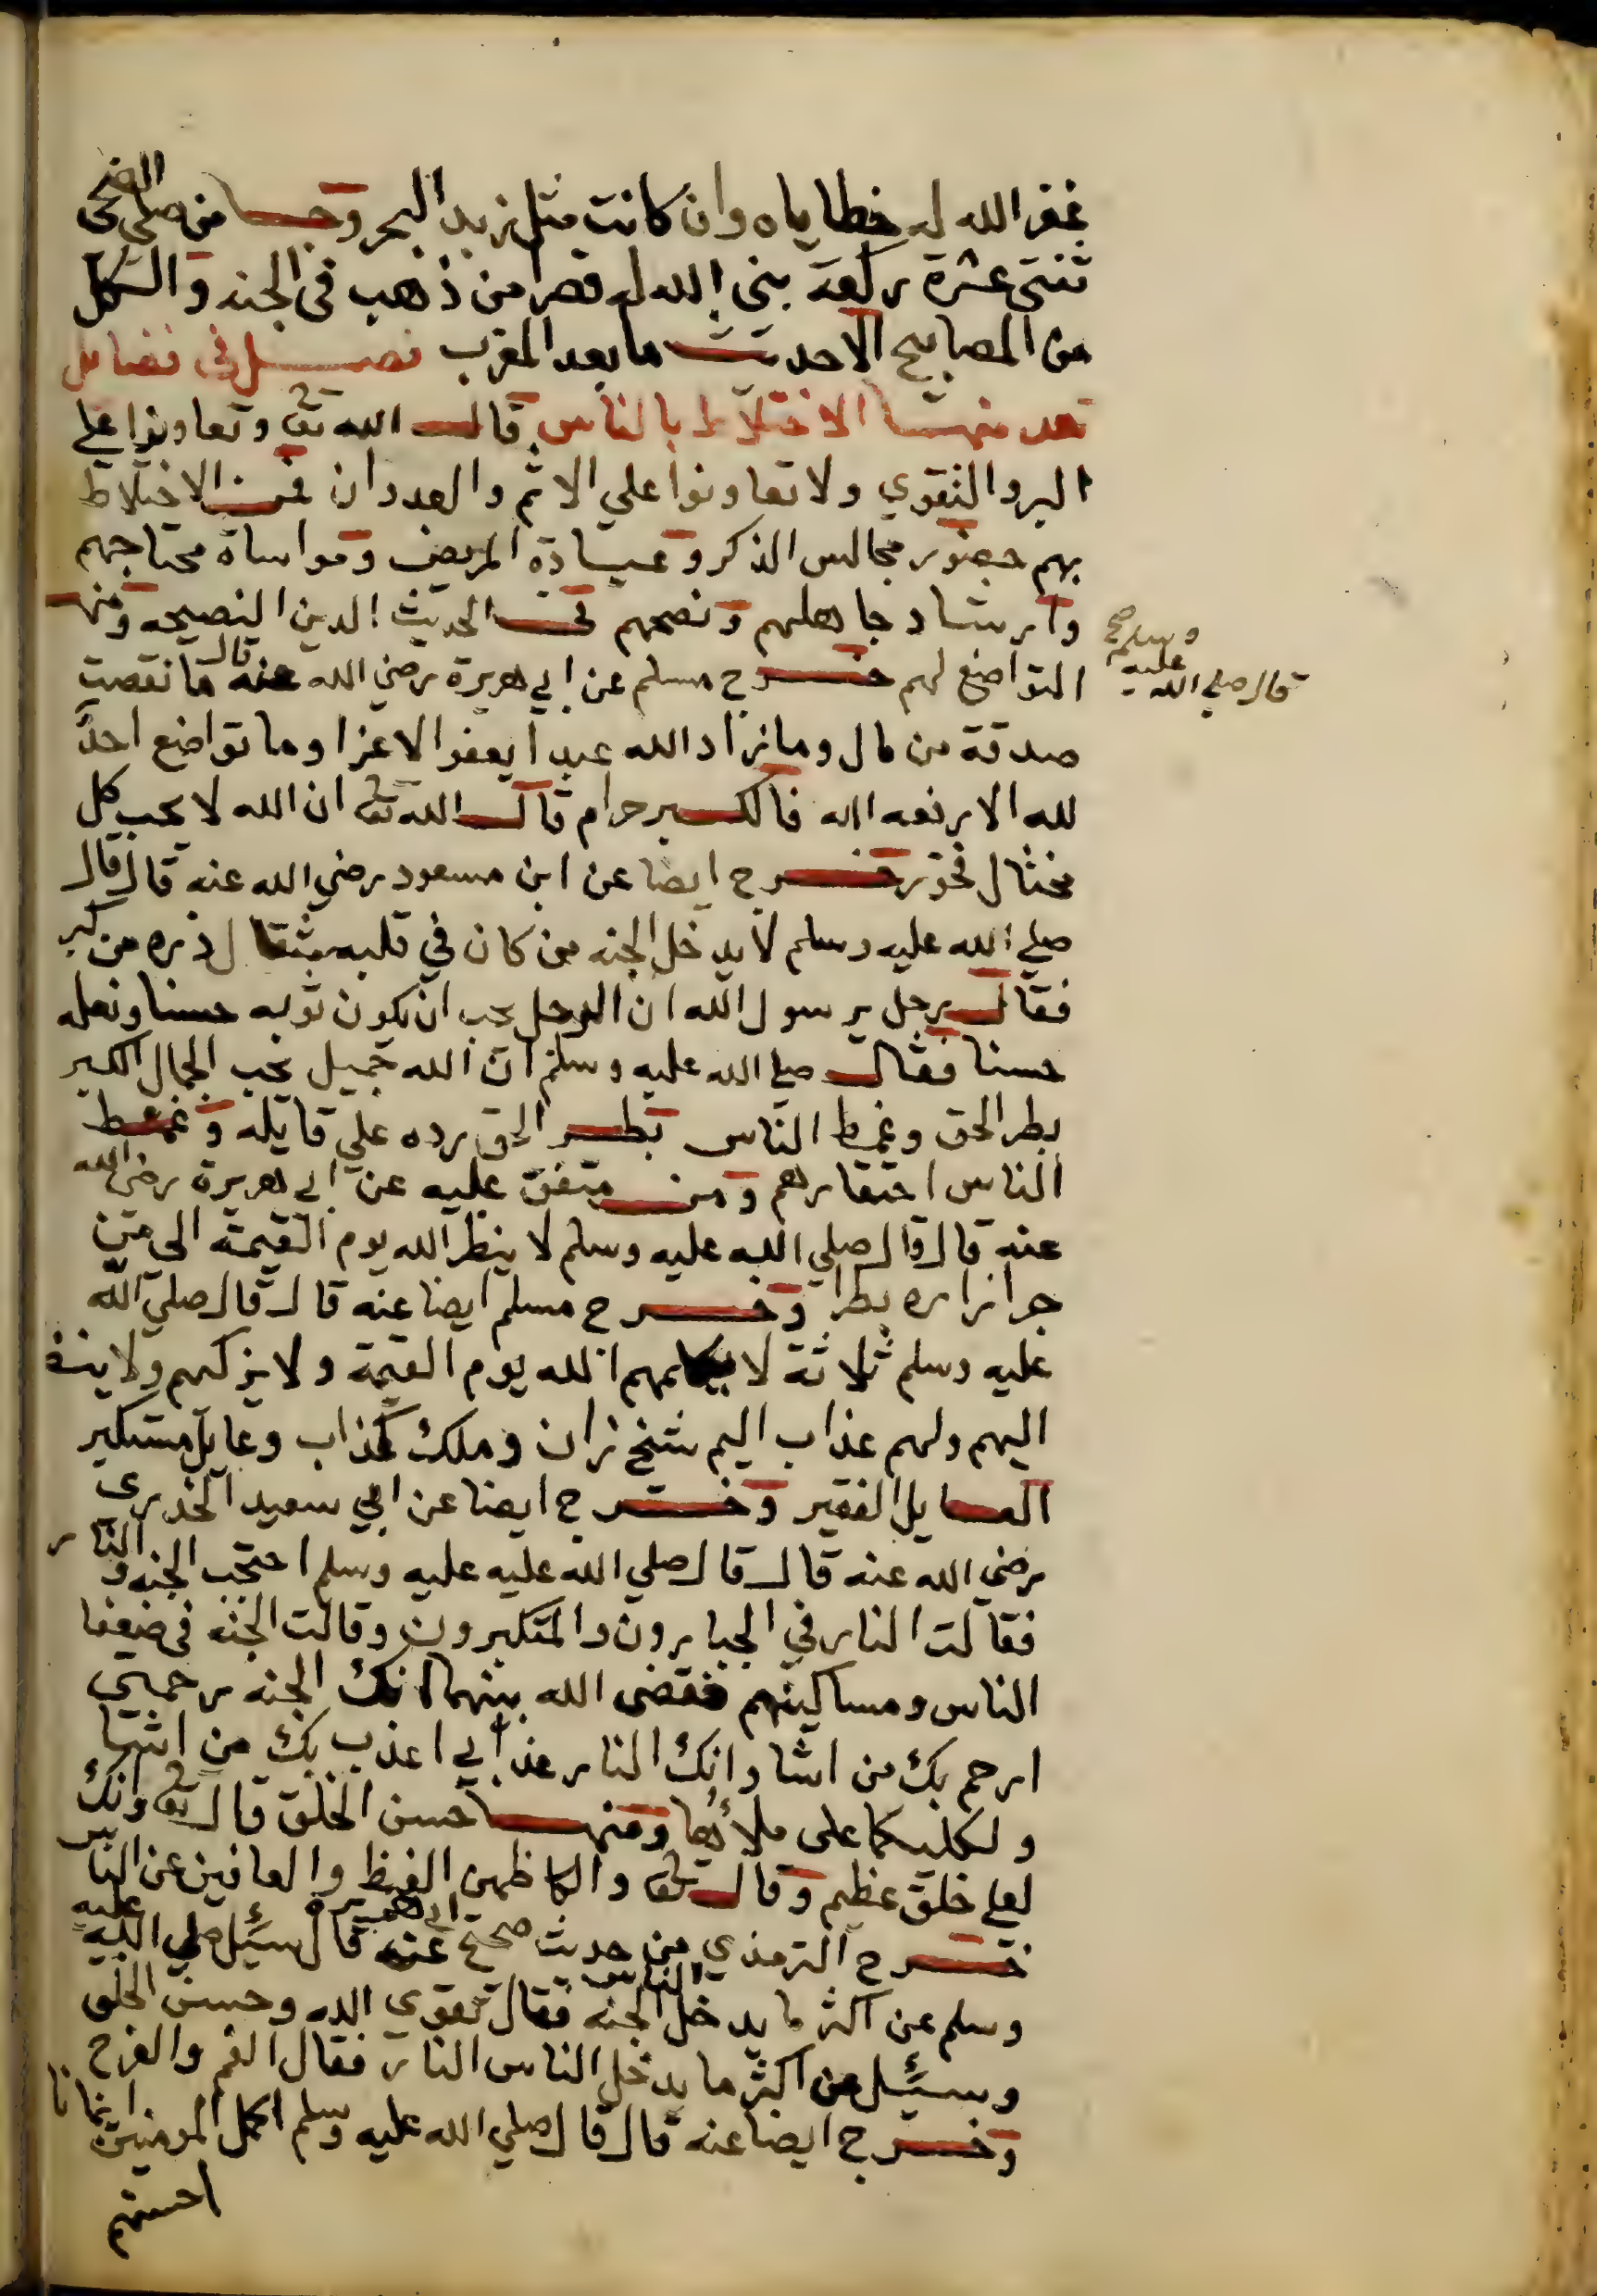 غفر الله له خطاياه وان كانت مثل زبد البحر وجا من صلى الضحى
ثنتى عشرة ركعة بنى الله له قصرا من ذهب فى الجنه والكل
من المصابيح الا حديث ما بعد المغرب فصل فى فضايل
تعد منها الاختلاط بالناس قال الله تعٰ وتعاونوا علي
البر والتقوي ولا تعاونوا علي الاثم والعدوان فمن الاختلاط
بهم حضور مجالس الذكر وعيادة المريض ومواساة محتاجهم
وارشاد جاهلهم ونصحهم فى الحديث الدين النصيحه ومنها
التواضع لهم خرج مسلم عن ابي هريرة رضي الله عنه قال ما نقصت
قال صلي الله عليه وسلم صح
صدقة من مال وما زاد الله عبدا يعفو الا عزا وما تواضع احدٌ
لله الا رفعه الله فالكبر حرام قال الله تعٰ ان الله لا يحب كل
مختال فخور خرج ايضا عن ابن مسعود رضي الله عنه قال قال
صلي الله عليه وسلم لا يدخل الجنه من كان في قلبه مثقال ذره من كبر
فقال رجل يرسول الله ان الرجل يحب ان يكون ثوبه حسنا ونعله
حسنا فقال صلي الله عليه وسلم ان الله جميل يحب الجمال الكبر
بطر الحق وغمط الناس بطر الحق رده علي قايله وغمط
الناس احتقارهم ومن متفق عليه عن ابي هريرة رضي الله
عنه قال قال صلي الله عليه وسلم لا ينظر الله يوم القيمة الى من
جر ازاره بطرا وخرج مسلم ايضا عنه قال قال صلي الله
عليه وسلم ثلاثة لا يكلمهم الله يوم القيمة ولا يزكهم ولا ينظر
اليهم ولهم عذاب اليم شيخ زان وملك كذاب وعايل مستكبر
العايل الفقير وخرج ايضا عن ابي سعيد الخدرى
رضي الله عنه قال قال صلي الله عليه عليه وسلم احتجت الجنه والنار
فقالت النار في الجبارون والمتكبرون وقالت الجنه فى ضعفا
الناس ومساكينهم فقضى الله بينهما انك الجنه رحمتي
ارحم بك من اشا وانك النار عذابي اعذب بك من اشا
ولكليكما على ملأها ومنها حسن الخلق قال تعٰ وانك
لعلي خلق عظيم وقال تعٰ والكاظمين الغيظ والعافين عن الناس
خرج الترمذي من حديث صحيح عنه ابي هريرة قال سئل صلي الله عليه
وسلم عن اكثر ما يدخل الناس الجنه فقال تقوي الله وحسن الخلق
وسئل عن اكثر ما يدخل الناس النار فقال الفم والفرج
وخرج ايضا عنه قال قال صلي الله عليه وسلم اكمل المومنين ايمانا
احسنهم